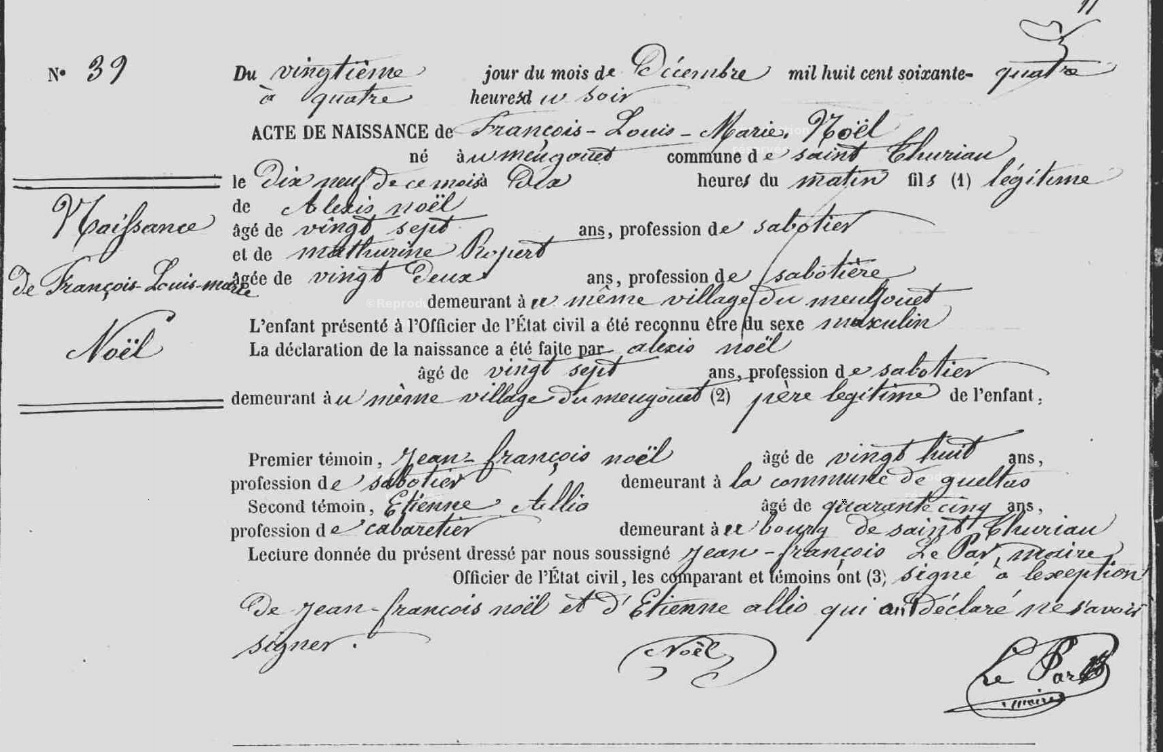 N° 39
Du vingtième jour du mois de Décembre mil huit cent soixante- quatre
à quatre heures du soir
ACTE DE NAISSANCE de François-Louis-Marie. Noël
né au meugouet commune de saint Thuriau
le Dix neuf de ce mois à Dix heures du matin fils (1) légitime
de Alexis noël
âgé de vingt sept ans, profession de sabotier
et de mathurine Ropert
âgée de vingt Deux ans, profession de sabotière
demeurant à u même village du meugouet
L'enfant présenté à l'Officier de l'État civil a été reconnu être du sexe masculin
La déclaration de la naissance a été faite par alexis noël
âgé de vingt sept ans, profession de sabotier
demeurant à u même village du meugouet (2) père legitime de l'enfant.
Naissance
de François-Louis-marie
Noël
Premier témoin, Jean-françois noël âgé de vingt huit ans,
profession de sabotier demeurant à la commune de gueltas
Second témoin, Etienne Allio âgé de quarante cinq ans,
profession de cabaretier demeurant à u bourg de saint Thuriau
Lecture donnée du présent dressé par nous soussigné Jean-françois Le Par, maire,
Officier de l'État civil, les comparant et témoins ont (3) signé à lexeption
de Jean-francois noël et d'Etienne allio qui ont déclaré ne savoir
signer.
Noël
Le Par
maire